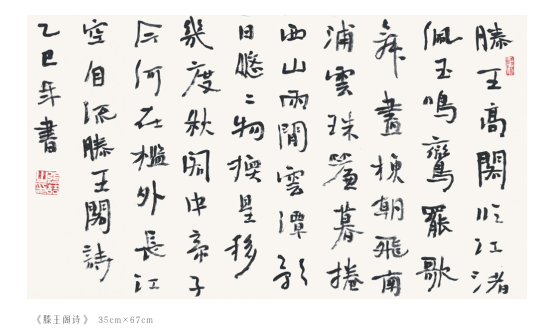 滕王高閣臨江渚
佩玉鳴鸞罷歌
舞畫棟朝飛南
浦雲珠簾暮捲
西山雨閒雲潭影
日悠々物換星移
幾度秋閣中帝子
今何在檻外長江
空自流滕王閣詩
乙巳年書
《滕王阁诗》 35cm×67cm